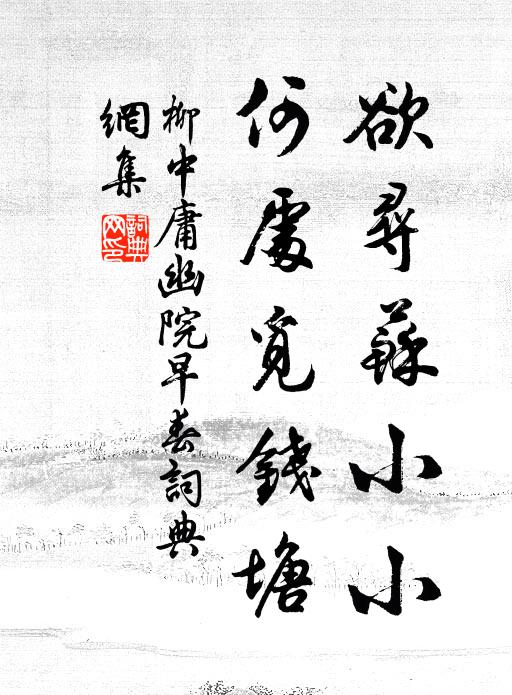 欲尋蘇小小
何處覓錢塘
柳中庸幽院早春詞典
網集
詞典
网印